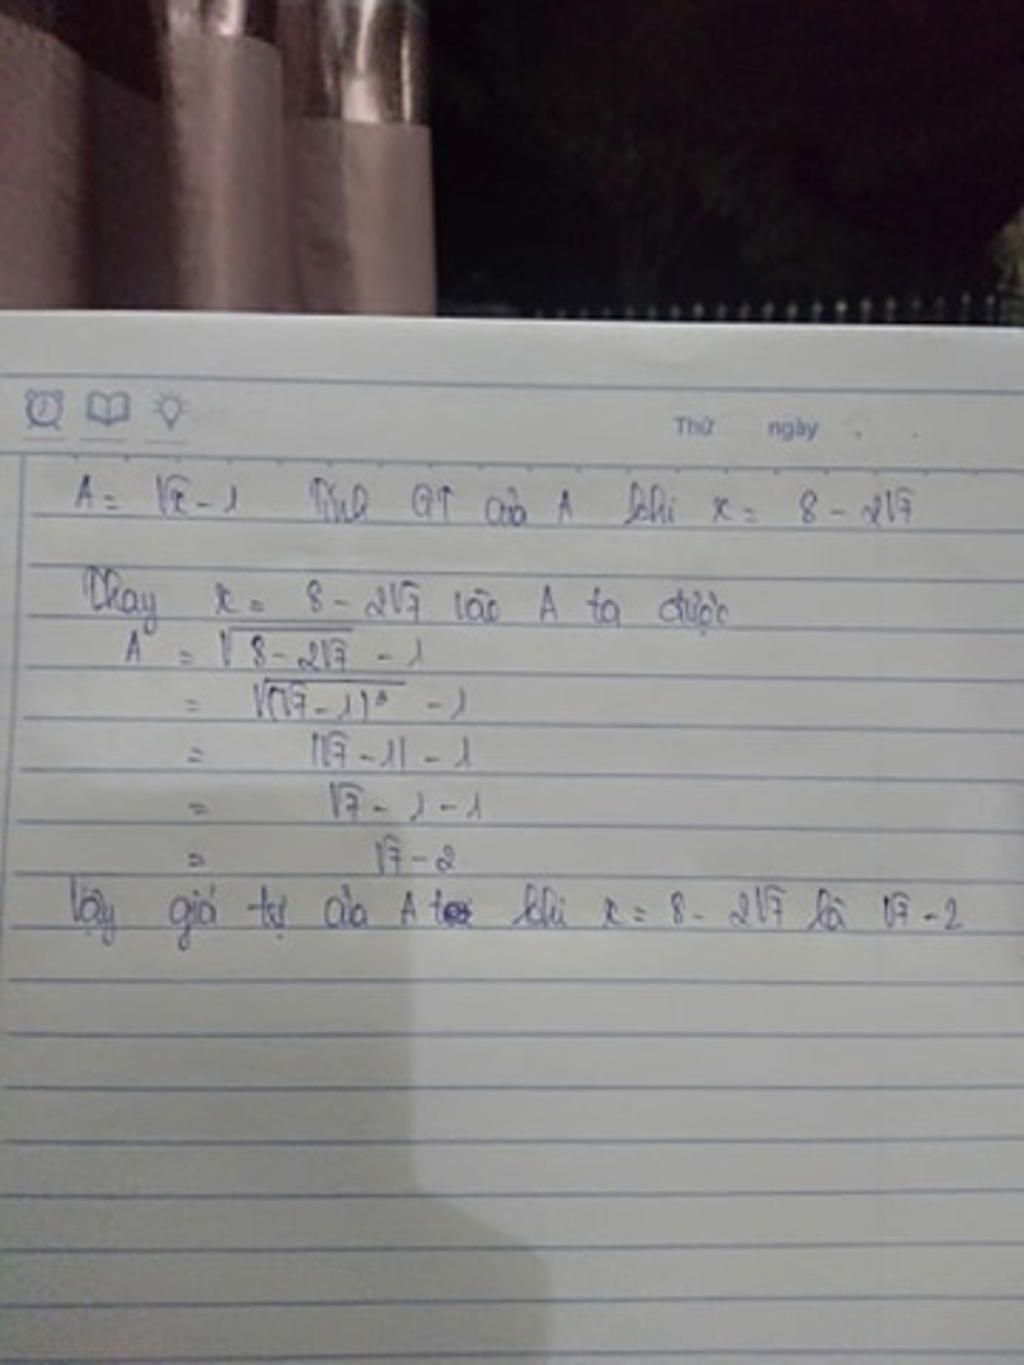 Thứ ngày
A = √x - 1 Tính GT của A khi x = 8 - 2√7
Thay x = 8 - 2√7 vào A ta được
A = √(8 - 2√7) - 1
= √((√7 - 1)²) - 1
= |√7 - 1| - 1
= √7 - 1 - 1
= √7 - 2
Vậy giá trị của A khi x = 8 - 2√7 là √7 - 2